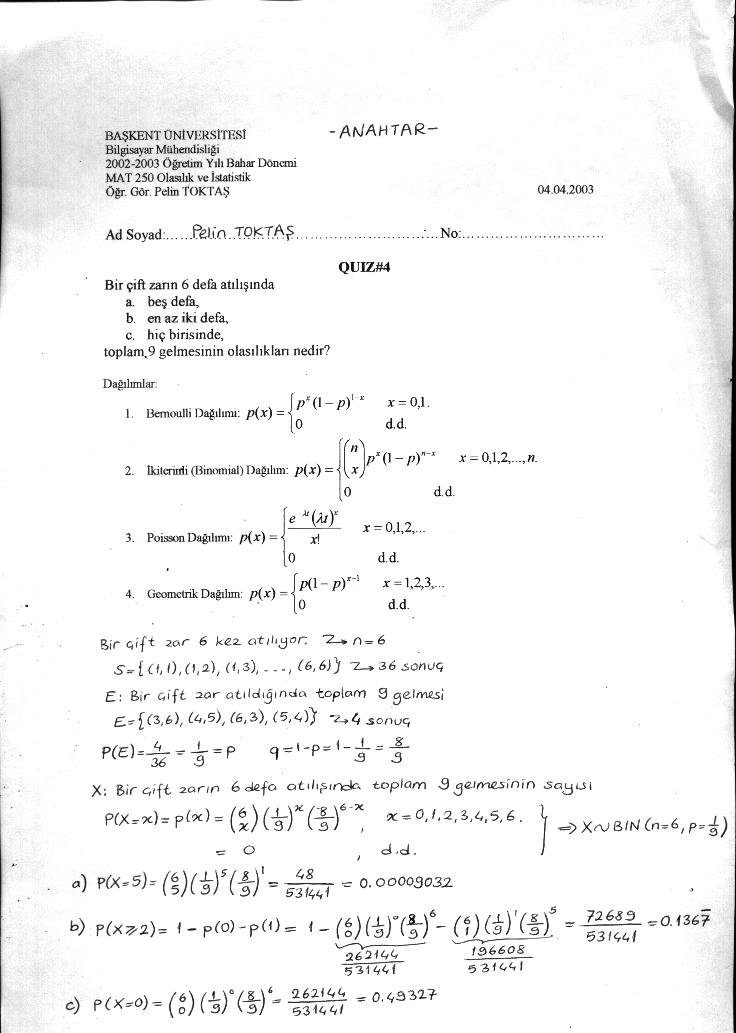 -ANAHTAR-
BAŞKENT ÜNİVERSİTESİ
Bilgisayar Mühendisliği
2002-2003 Öğretim Yılı Bahar Dönemi
MAT 250 Olasılık ve İstatistik
Öğr. Gör. Pelin TOKTAŞ 04.04.2003
Ad Soyad:......Pelin TOKTAŞ..............................No:.............................
QUIZ#4
Bir çift zarın 6 defa atılışında
a. beş defa,
b. en az iki defa,
c. hiç birisinde,
toplam 9 gelmesinin olasılıkları nedir?
Dağılımlar:
1. Bernoulli Dağılımı: p(x) = { p^x (1 − p)^{1−x} x = 0,1.
0 d.d.
2. İkiterimli (Binomial) Dağılım: p(x) = { (n x) p^x (1 − p)^{n−x} x = 0,1,2,...,n.
0 d.d.
3. Poisson Dağılımı: p(x) = { e^{λt} (λt)^x / x! x = 0,1,2,...
0 d.d.
4. Geometrik Dağılım: p(x) = { p(1 − p)^{x−1} x = 1,2,3,...
0 d.d.
Bir çift zar 6 kez atılıyor. → n=6
S={(1,1),(1,2),(1,3),...,(6,6)} → 36 sonuç
E: Bir çift zar atıldığında toplam 9 gelmesi
E={(3,6),(4,5),(6,3),(5,4)} → 4 sonuç
P(E)= 4/36 = 1/9 = p q=1-p=1-1/9 = 8/9
X: Bir çift zarın 6 defa atılışında toplam 9 gelmesinin sayısı
P(X=x)= p(x)= (6 x)(1/9)^x (8/9)^{6-x}, x=0,1,2,3,4,5,6. } ⇒ X~BIN(n=6, p=1/9)
= 0 , d.d.
a) P(X=5)= (6 5)(1/9)^5 (8/9)^1 = 48/531441 = 0.00009032
b) P(X≥2)= 1 - p(0) - p(1) = 1 - (6 0)(1/9)^0 (8/9)^6 - (6 1)(1/9)^1 (8/9)^5 = 72689/531441 = 0.1367
262144/531441 196608/531441
c) P(X=0)= (6 0)(1/9)^0 (8/9)^6 = 262144/531441 = 0.49327